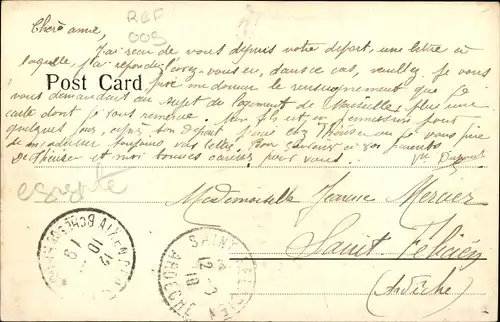 Chère amie,
REF
009
J'ai reçu de vous depuis votre départ, une lettre à
laquelle j'ai répondu, l'avez-vous eu, dans ce cas, veuillez je vous
Post Card
prie me donner le renseignement que je
vous demandais au sujet de logement de Marseille, plus une
carte dont je vous remercie. Mon fils est en permission pour
quelques jours, après son départ j'irai chez Thérèse ou je vous prie
de m'adresser toujours vos lettres. Bon souvenir à vos parents
de Thérèse et moi bonnes caresses pour vous. Vve
egypte
Mademoiselle Jeanne Mercier
Saint Félicien
(Ardèche)
AIX-EN-
BOUCHES-DU-RHONE
12
10
19
SAINT-FÉLICIEN
ARDECHE
12-3
18